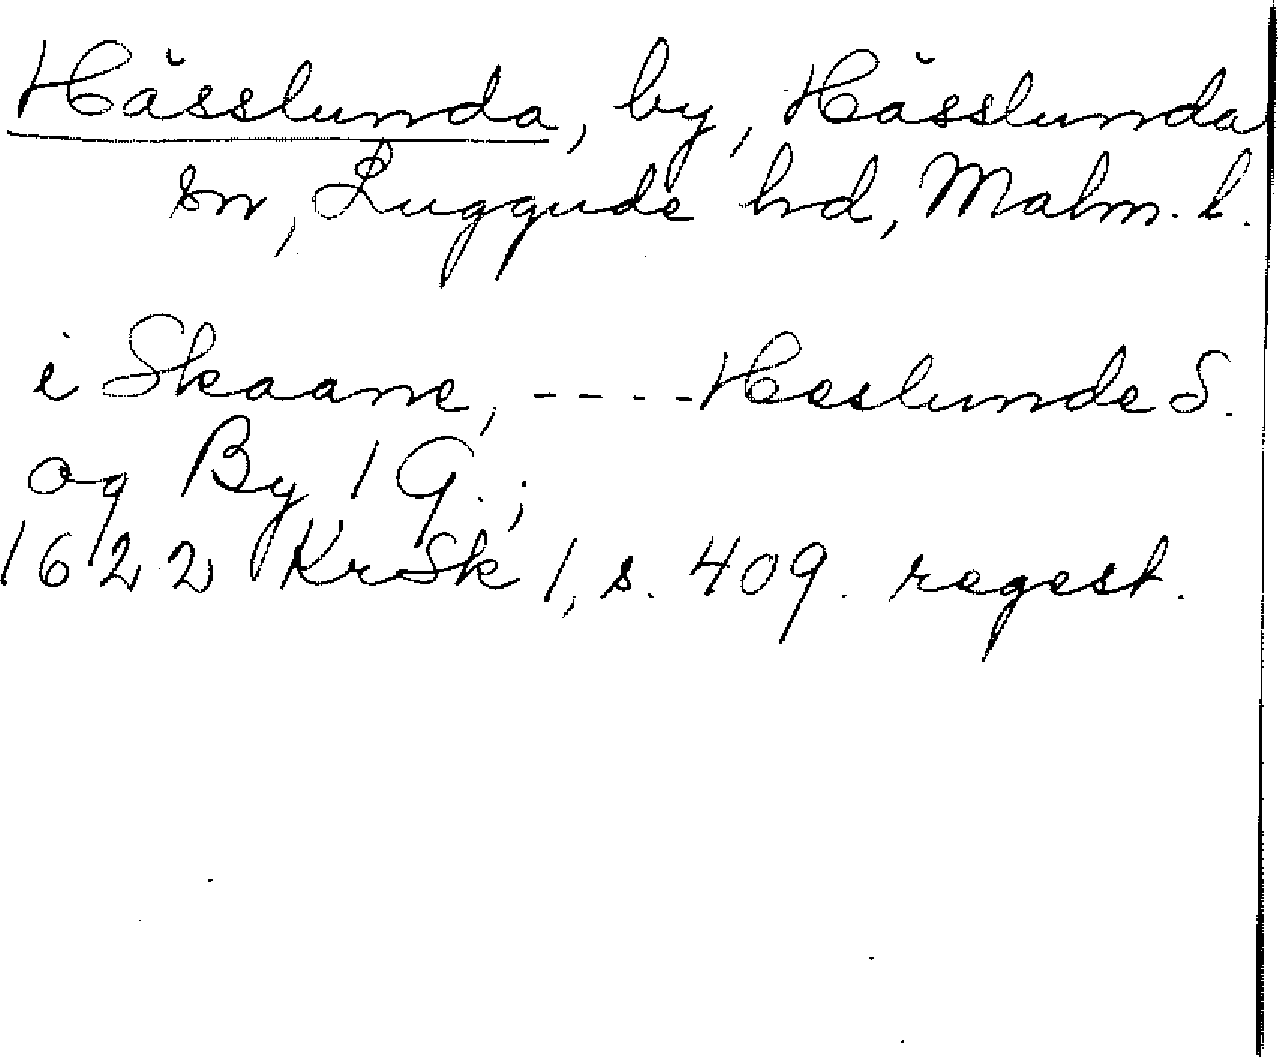 Hässlunda, by, Hässlunda
sn, Luggude hd, Malm. l.
i Skaane, ---- Heslunde S.
og By 1 G.;
1622 KrSk 1, s. 409. regest.